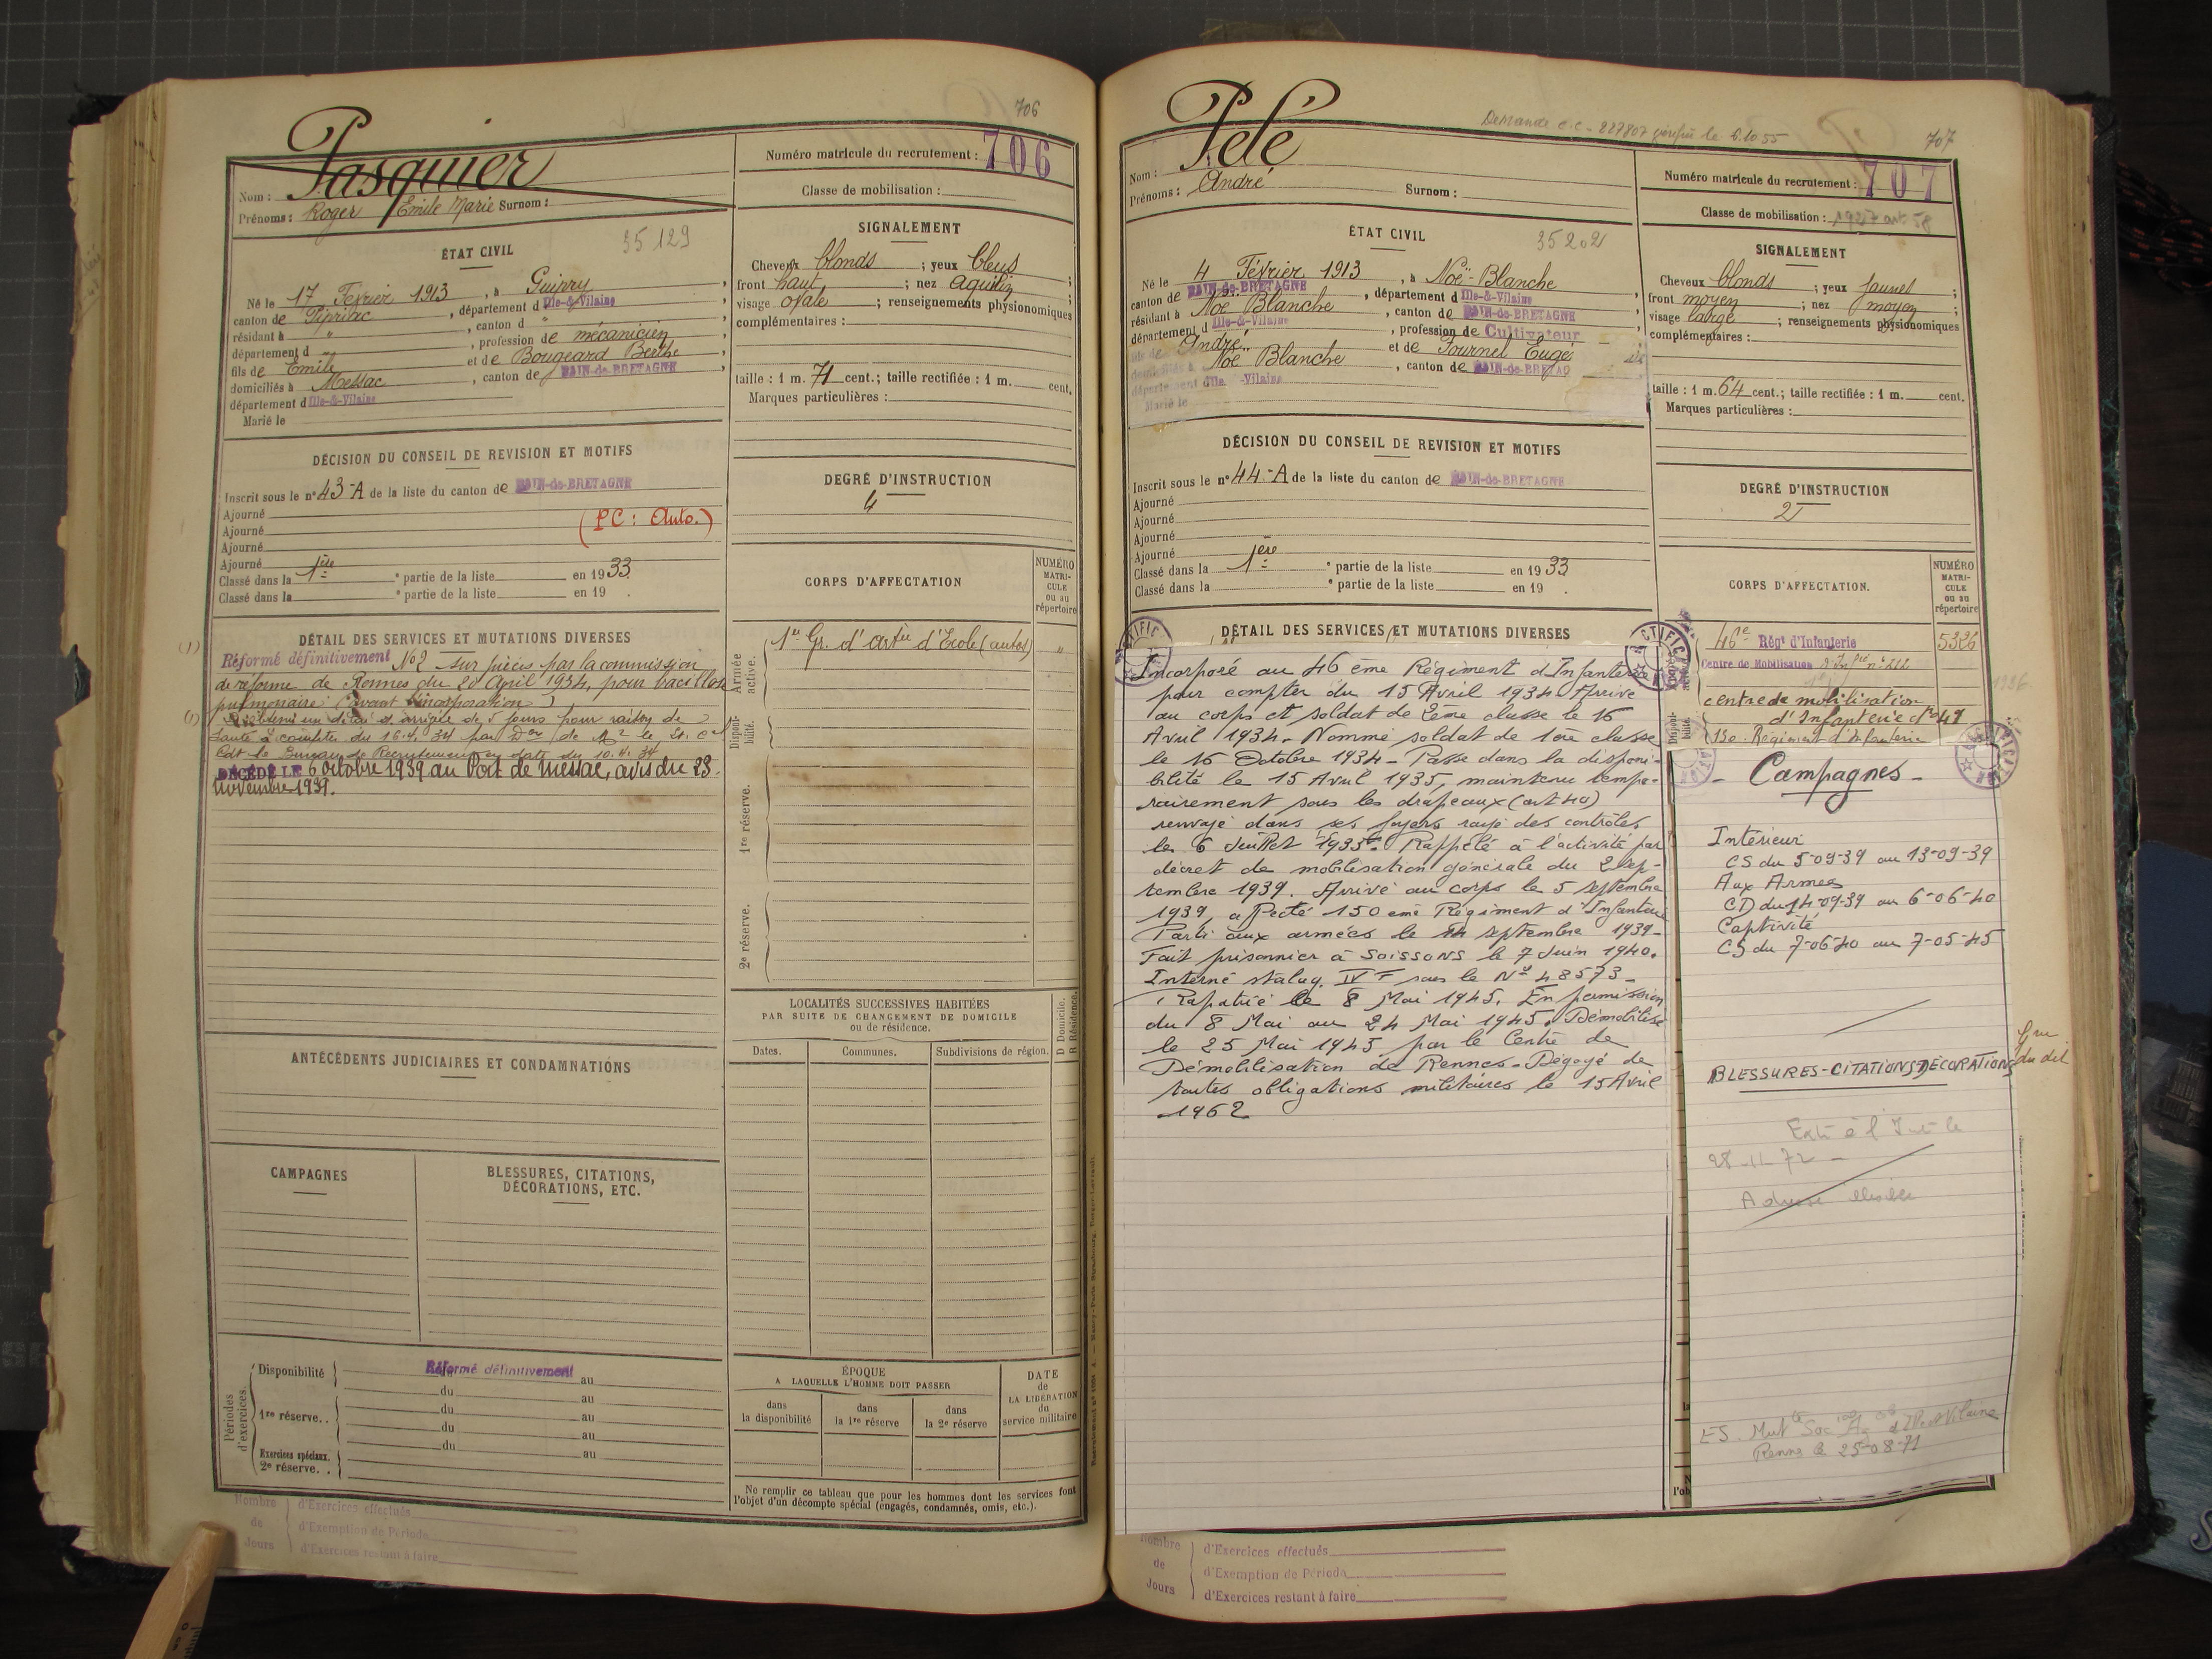 706
Pasquier
Nom :
Prénoms : Roger Emile Marie Surnom :
Numéro matricule du recrutement : 706
Classe de mobilisation :
ÉTAT CIVIL
35129
Né le 17 Fevrier 1913, à Guipry,
canton de Pipriac, département d Ille-&-Vilaine
résidant à " , canton d " ,
département d " , profession de mécanicien,
fils de Emile et de Bougeard Berthe,
domiciliés à Messac, canton de BAIN-de-BRETAGNE,
département d Ille-&-Vilaine
Marié le
SIGNALEMENT
Cheveux blonds ; yeux bleus ;
front haut ; nez Aquilin ;
visage ovale ; renseignements physionomiques
complémentaires :
taille : 1 m. 71 cent.; taille rectifiée : 1 m. cent.
Marques particulières :
DÉCISION DU CONSEIL DE REVISION ET MOTIFS
Inscrit sous le n° 43-A de la liste du canton de BAIN-de-BRETAGNE
Ajourné
Ajourné (PC : Auto.)
Ajourné
Ajourné
Classé dans la 1ère partie de la liste en 1933.
Classé dans la partie de la liste en 19 .
DEGRÉ D'INSTRUCTION
4
CORPS D'AFFECTATION
NUMÉRO MATRI-CULE ou au répertoire
Armée active.
1er Gr. d'artie d'Ecole (autos) "
Disponi-bilité.
1re réserve.
2e réserve.
DÉTAIL DES SERVICES ET MUTATIONS DIVERSES
(1) Réformé définitivement No2 sur pièces par la commission
de réforme de Rennes du 20 April 1934, pour bacillose
pulmonaire (avant l'incorporation)
(1) A obtenu un délai d'arrivée de 5 jours pour raison de
santé à compter du 16.4.34 par
Cdt le Bureau de Recrutement en date du 10.4.34
DÉCÉDÉ LE 6 octobre 1939 au Port de Messac, avis du 23
novembre 1939.
LOCALITÉS SUCCESSIVES HABITÉES
PAR SUITE DE CHANGEMENT DE DOMICILE
ou de résidence.
D Domicile.
R Résidence.
Dates. Communes. Subdivisions de région.
ANTÉCÉDENTS JUDICIAIRES ET CONDAMNATIONS
CAMPAGNES
BLESSURES, CITATIONS,
DÉCORATIONS, ETC.
Périodes d'exercices.
Disponibilité Réformé définitivement
du au
1re réserve. . du au
du au
du au
du au
Exercices spéciaux.
2e réserve. .
ÉPOQUE
A LAQUELLE L'HOMME DOIT PASSER
dans la disponibilité
dans la 1re réserve
dans la 2e réserve
DATE de LA LIBÉRATION du service militaire
Ne remplir ce tableau que pour les hommes dont les services font
l'objet d'un décompte spécial (engagés, condamnés, omis, etc.).
Nombre de Jours
d'Exercices effectués
d'Exemption de Période
d'Exercices restant à faire
Demande c.c. 227807 le 6.10.55
707
Pelé
Nom :
Prénoms : André Surnom :
Numéro matricule du recrutement : 707
Classe de mobilisation : 1927 art 58
ÉTAT CIVIL
35202
Né le 4 Février 1913, à Noë-Blanche
canton de BAIN-de-BRETAGNE, département d Ille-&-Vilaine,
résidant à Noë Blanche, canton de BAIN-de-BRETAGNE,
département d Ille-&-Vilaine, profession de Cultivateur,
fils de André et de Fournel Eugé
domiciliés à Noë Blanche, canton de BAIN-de-BRETAG
département d Ille -Vilaine
Marié le
SIGNALEMENT
Cheveux blonds ; yeux jaunes ;
front moyen ; nez moyen ;
visage large ; renseignements physionomiques
complémentaires :
taille : 1 m. 64 cent.; taille rectifiée : 1 m. cent.
Marques particulières :
DÉCISION DU CONSEIL DE REVISION ET MOTIFS
Inscrit sous le n° 44-A de la liste du canton de BAIN-de-BRETAGNE
Ajourné
Ajourné
Ajourné
Ajourné
Classé dans la 1ère partie de la liste en 1933
Classé dans la partie de la liste en 19 .
DEGRÉ D'INSTRUCTION
2
CORPS D'AFFECTATION.
NUMÉRO MATRI-CULE ou au répertoire
46e Régt d'Infanterie 5326
Centre de Mobilisation d'Infie n° 212
centre de mobilisation
d'Infanterie No 41
Disponi-bilité.
150 Régiment d'Infanterie
DÉTAIL DES SERVICES ET MUTATIONS DIVERSES
Incorporé au 46 ème Régiment d'Infanterie
pour compter du 15 Avril 1934. Arrivé
au corps et soldat de 2ème classe le 16
Avril 1934. Nommé soldat de 1ère classe
le 16 Octobre 1934 - Passé dans la disponi-
bilité le 15 Avril 1935, maintenu tempo-
rairement sous les drapeaux (art 40)
renvoyé dans ses foyers rayé des contrôles
le 6 Juillet 1935. Rappelé à l'activité par
décret de mobilisation générale du 2 sep-
tembre 1939. Arrivé au corps le 5 septembre
1939, affecté 150 ème Régiment d'Infanterie
Parti aux armées le 14 septembre 1939-
Fait prisonnier à SOISSONS le 7 Juin 1940.
Interné stalag IV F sous le N° 48573 -
Rapatrié le 8 Mai 1945. En permission
du 8 Mai au 24 Mai 1945. Démobilisé
le 25 Mai 1945 par le Centre de
Démobilisation de Rennes - Dégagé de
toutes obligations militaires le 15 Avril
1962
- Campagnes -
Intérieur
CS du 5-09-39 au 13-09-39
Aux Armées
CD du 14-09-39 au 6-06-40
Captivité
CS du 7-06-40 au 7-05-45
BLESSURES-CITATIONS DÉCORATIONS
28-11-72 -
Rennes le 25-08-71
Nombre de Jours
d'Exercices effectués
d'Exemption de Période
d'Exercices restant à faire